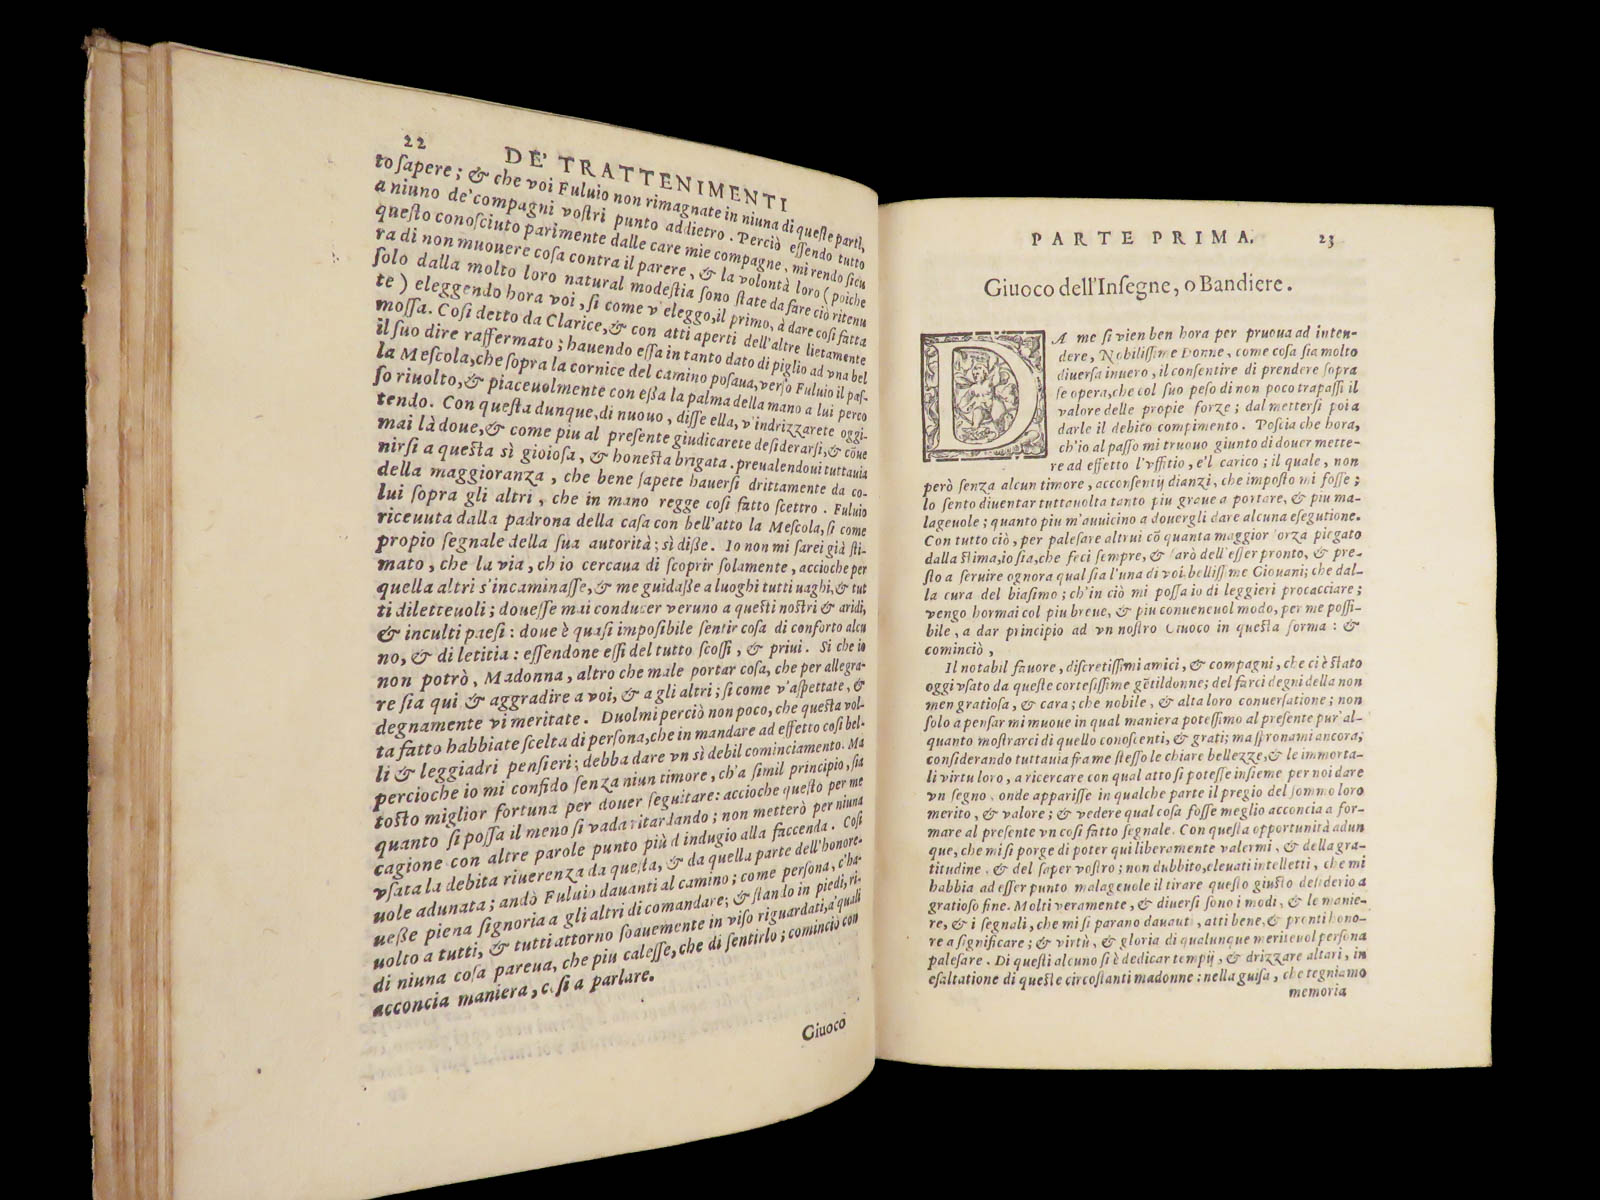 22
DE' TRATTENIMENTI
to ſapere; & che voi Fuluio non rimagnate in niuna di queſte parti,
a niuno de' compagni voſtri punto addietro. Perciò eſſendo tutto
queſto conoſciuto parimente dalle care mie compagne, mi rendo ſicu
ra di non muouere coſa contra il parere, & la volontà loro (poiche
ſolo dalla molto loro natural modeſtia ſono ſtate da fare ciò ritenu
te) eleggendo hora voi, ſi come v'eleggo, il primo, à dare coſi fatta
moſſa. Coſi detto da Clarice, & con atti aperti dell'altre lietamente
il ſuo dire raffermato; hauendo eſſa in tanto dato di piglio ad vna bel
la Meſcola, che ſopra la cornice del camino poſaua, verſo Fuluio il paſ-
ſo riuolto, & piaceuolmente con eßa la palma della mano a lui perco
tendo. Con queſta dunque, di nuouo, diſſe ella, v'indrizzarete oggi-
mai là doue, & come piu al preſente giudicarete deſiderarſi, & cōue
nirſi a queſta sì gioioſa, & honeſta brigata. preualendoui tuttauia
della maggioranza, che bene ſapete hauerſi drittamente da co-
lui ſopra gli altri, che in mano regge coſi fatto ſcettro. Fuluio
riceuuta dalla padrona della caſa con bell'atto la Meſcola, ſi come
propio ſegnale della ſua autorità; sì diße. Io non mi ſarei già ſti-
mato, che la via, ch io cercaua di ſcoprir ſolamente, accioche per
quella altri s'incaminaſſe, & me guidaße a luoghi tutti uaghi, & tut
ti diletteuoli; doueſſe mai conducer veruno a queſti noſtri & aridi,
& inculti paeſi: doue è quaſi impoſibile ſentir coſa di conforto alcu
no, & di letitia: eſſendone eſſi del tutto ſcoſſi, & priui. Si che io
non potrò, Madonna, altro che male portar coſa, che per allegra-
re ſia qui & aggradire a voi, & a gli altri; ſi come v'aſpettate, &
degnamente vi meritate. Duolmi perciò non poco, che queſta vol-
ta fatto habbiate ſcelta di perſona, che in mandare ad effetto coſi bel-
li & leggiadri penſieri; debba dare vn sì debil cominciamento. Ma
percioche io mi confido ſenza niun timore, ch'a ſimil principio, ſia
toſto miglior fortuna per douer ſeguitare: accioche queſto per me
quanto ſi poſſa il meno ſi vada ritardando; non metterò per niuna
cagione con altre parole punto più d indugio alla faccenda. Coſi
vſata la debita riuerenza da queſta, & da quella parte dell'honore-
uole adunata; andò Fuluio dauanti al camino; come perſona, c'ha-
ueße piena ſignoria a gli altri di comandare; & ſtando in piedi, ri-
uolto a tutti, & tutti attorno ſoauemente in viſo riguardati, a' quali
di niuna coſa pareua, che piu caleſſe, che di ſentirlo; cominciò con
acconcia maniera, coſi a parlare.
Giuoco
PARTE PRIMA. 23
Giuoco dell'Inſegne, o Bandiere.
DA me ſi vien ben hora per pruoua ad inten-
dere, Nobiliſſime Donne, come coſa ſia molto
diuerſa inuero, il conſentire di prendere ſopra
ſe opera, che col ſuo peſo di non poco trapaſſi il
valore delle propie forze; dal metterſi poi a
darle il debito compimento. Poſcia che hora,
ch'io al paſſo mi truouo giunto di douer mette-
re ad effetto l'vffitio, e'l carico; il quale, non
però ſenza alcun timore, acconſentij dianzi, che impoſto mi foſſe;
lo ſento diuentar tuttauolta tanto piu graue a portare, & piu ma-
lageuole; quanto piu m'auuicino a douergli dare alcuna eſegutione.
Con tutto ciò, per paleſare altrui cō quanta maggior forza piegato
dalla ſtima, io ſia, che feci ſempre, & farò dell'eſſer pronto, & pre-
ſto a ſeruire ognora qual ſia l'una di voi, belliſſime Giouani; che dal-
la cura del biaſimo; ch'in ciò mi poſſa io di leggieri procacciare;
vengo hormai col piu breue, & piu conueneuol modo, per me poſſi-
bile, a dar principio ad vn noſtro Giuoco in queſta forma: &
cominciò,
Il notabil fauore, diſcretiſſimi amici, & compagni, che ci è ſtato
oggi vſato da queſte corteſiſſime gētildonne; del farci degni della non
men gratioſa, & cara; che nobile, & alta loro conuerſatione; non
ſolo a penſar mi muoue in qual maniera poteſſimo al preſente pur'al-
quanto moſtrarci di quello conoſcenti, & grati; ma ſpronami ancora;
conſiderando tuttauia fra me ſteſſo le chiare bellezze, & le immorta-
li virtu loro, a ricercare con qual atto ſi poteſſe inſieme per noi dare
vn ſegno, onde appariſſe in qualche parte il pregio del ſommo loro
merito, & valore; & vedere qual coſa foſſe meglio acconcia a for-
mare al preſente vn coſi fatto ſegnale. Con queſta opportunità adun
que, che mi ſi porge di poter qui liberamente valermi, & della gra-
titudine, & del ſaper voſtro; non dubbito, eleuati intelletti, che mi
habbia ad eſſer punto malageuole il tirare queſto giuſto deſiderio a
gratioſo fine. Molti veramente, & diuerſi ſono i modi, & le manie-
re, & i ſegnali, che mi ſi parano dauanti, atti bene, & pronti hono-
re a ſignificare; & virtù, & gloria di qualunque meriteuol perſona
paleſare. Di queſti alcuno ſi è dedicar tempij, & drizzare altari, in
eſaltatione di queſte circoſtanti madonne: nella guiſa, che tegniamo
memoria